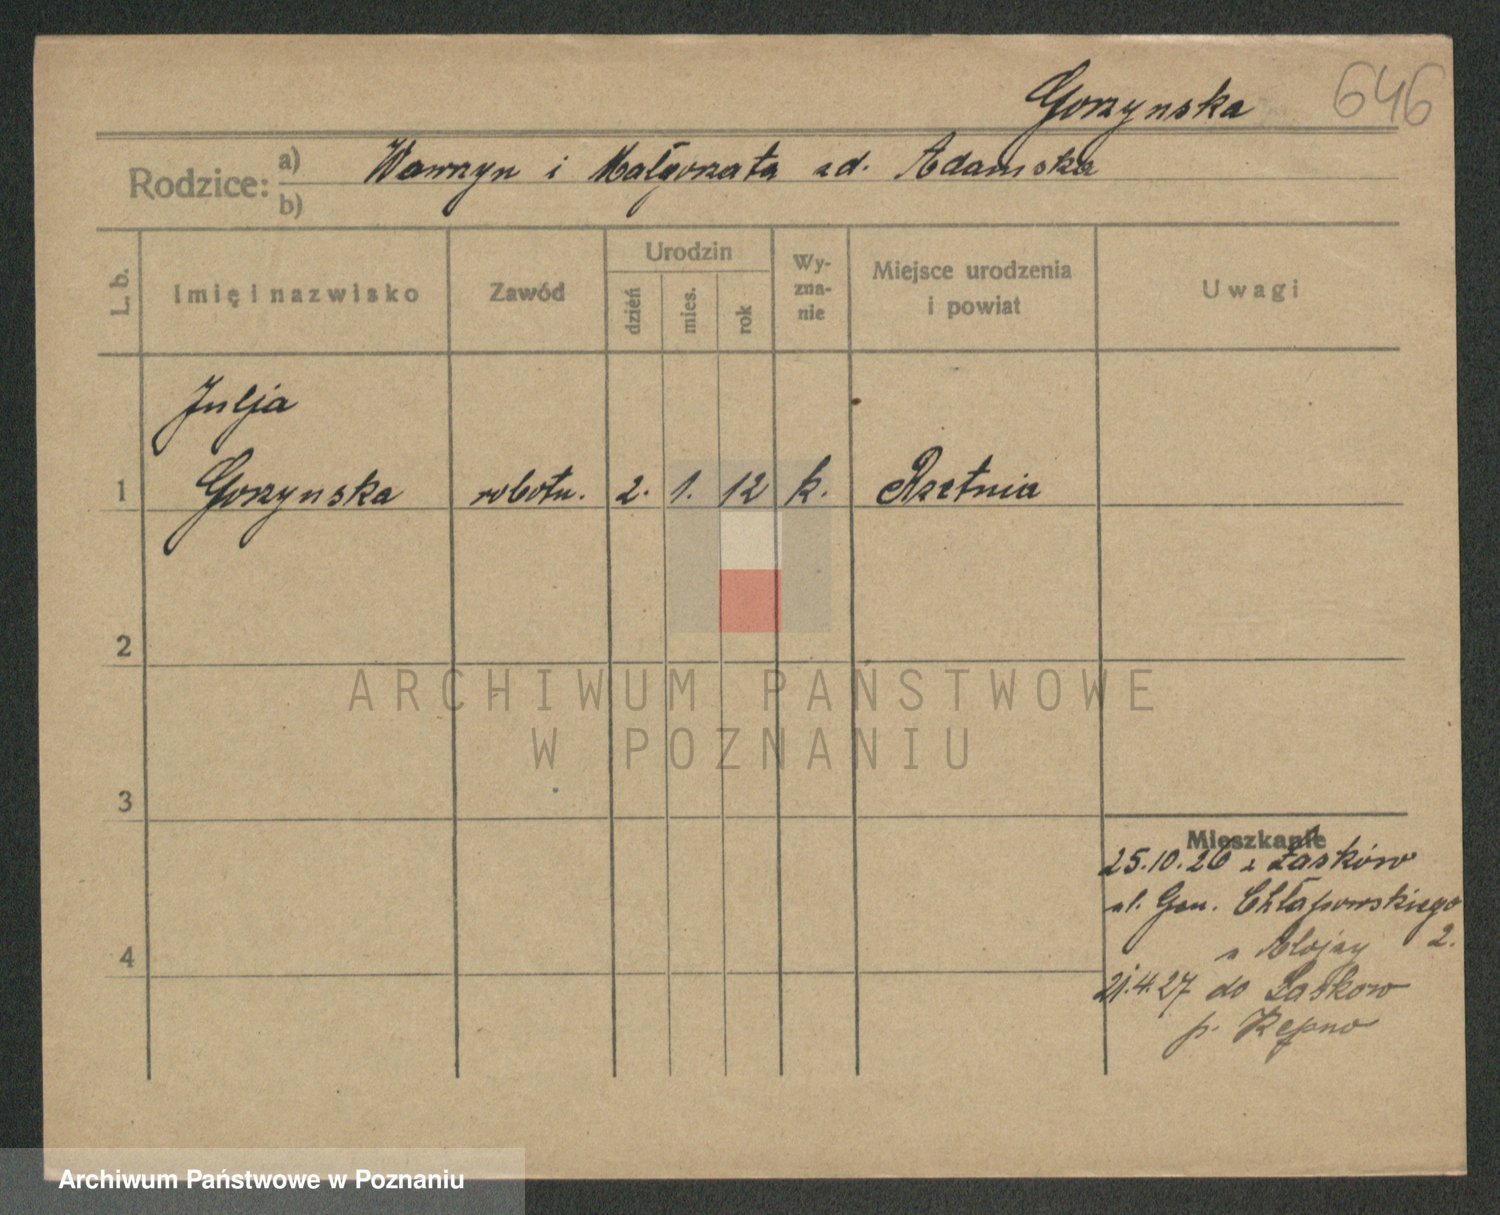 Gorzynska 646
Rodzice: a) Wawrzyn i Małgorzata zd. Adamska
b)
L. b.
Imię i nazwisko
Zawód
Urodzin
dzień
mies.
rok
Wy-
zna-
nie
Miejsce urodzenia
i powiat
Uwagi
Julja
1 Gorzynska robotn. 2. 1. 12 k. Rzetnia
2
ARCHIWUM PAŃSTWOWE
W POZNANIU
3
Mieszkanie
25.10.26 z Łasków
ul. Gen. Chłapowskiego
2.
21.4.27 do Laskow
p. Kępno
4
Archiwum Państwowe w Poznaniu